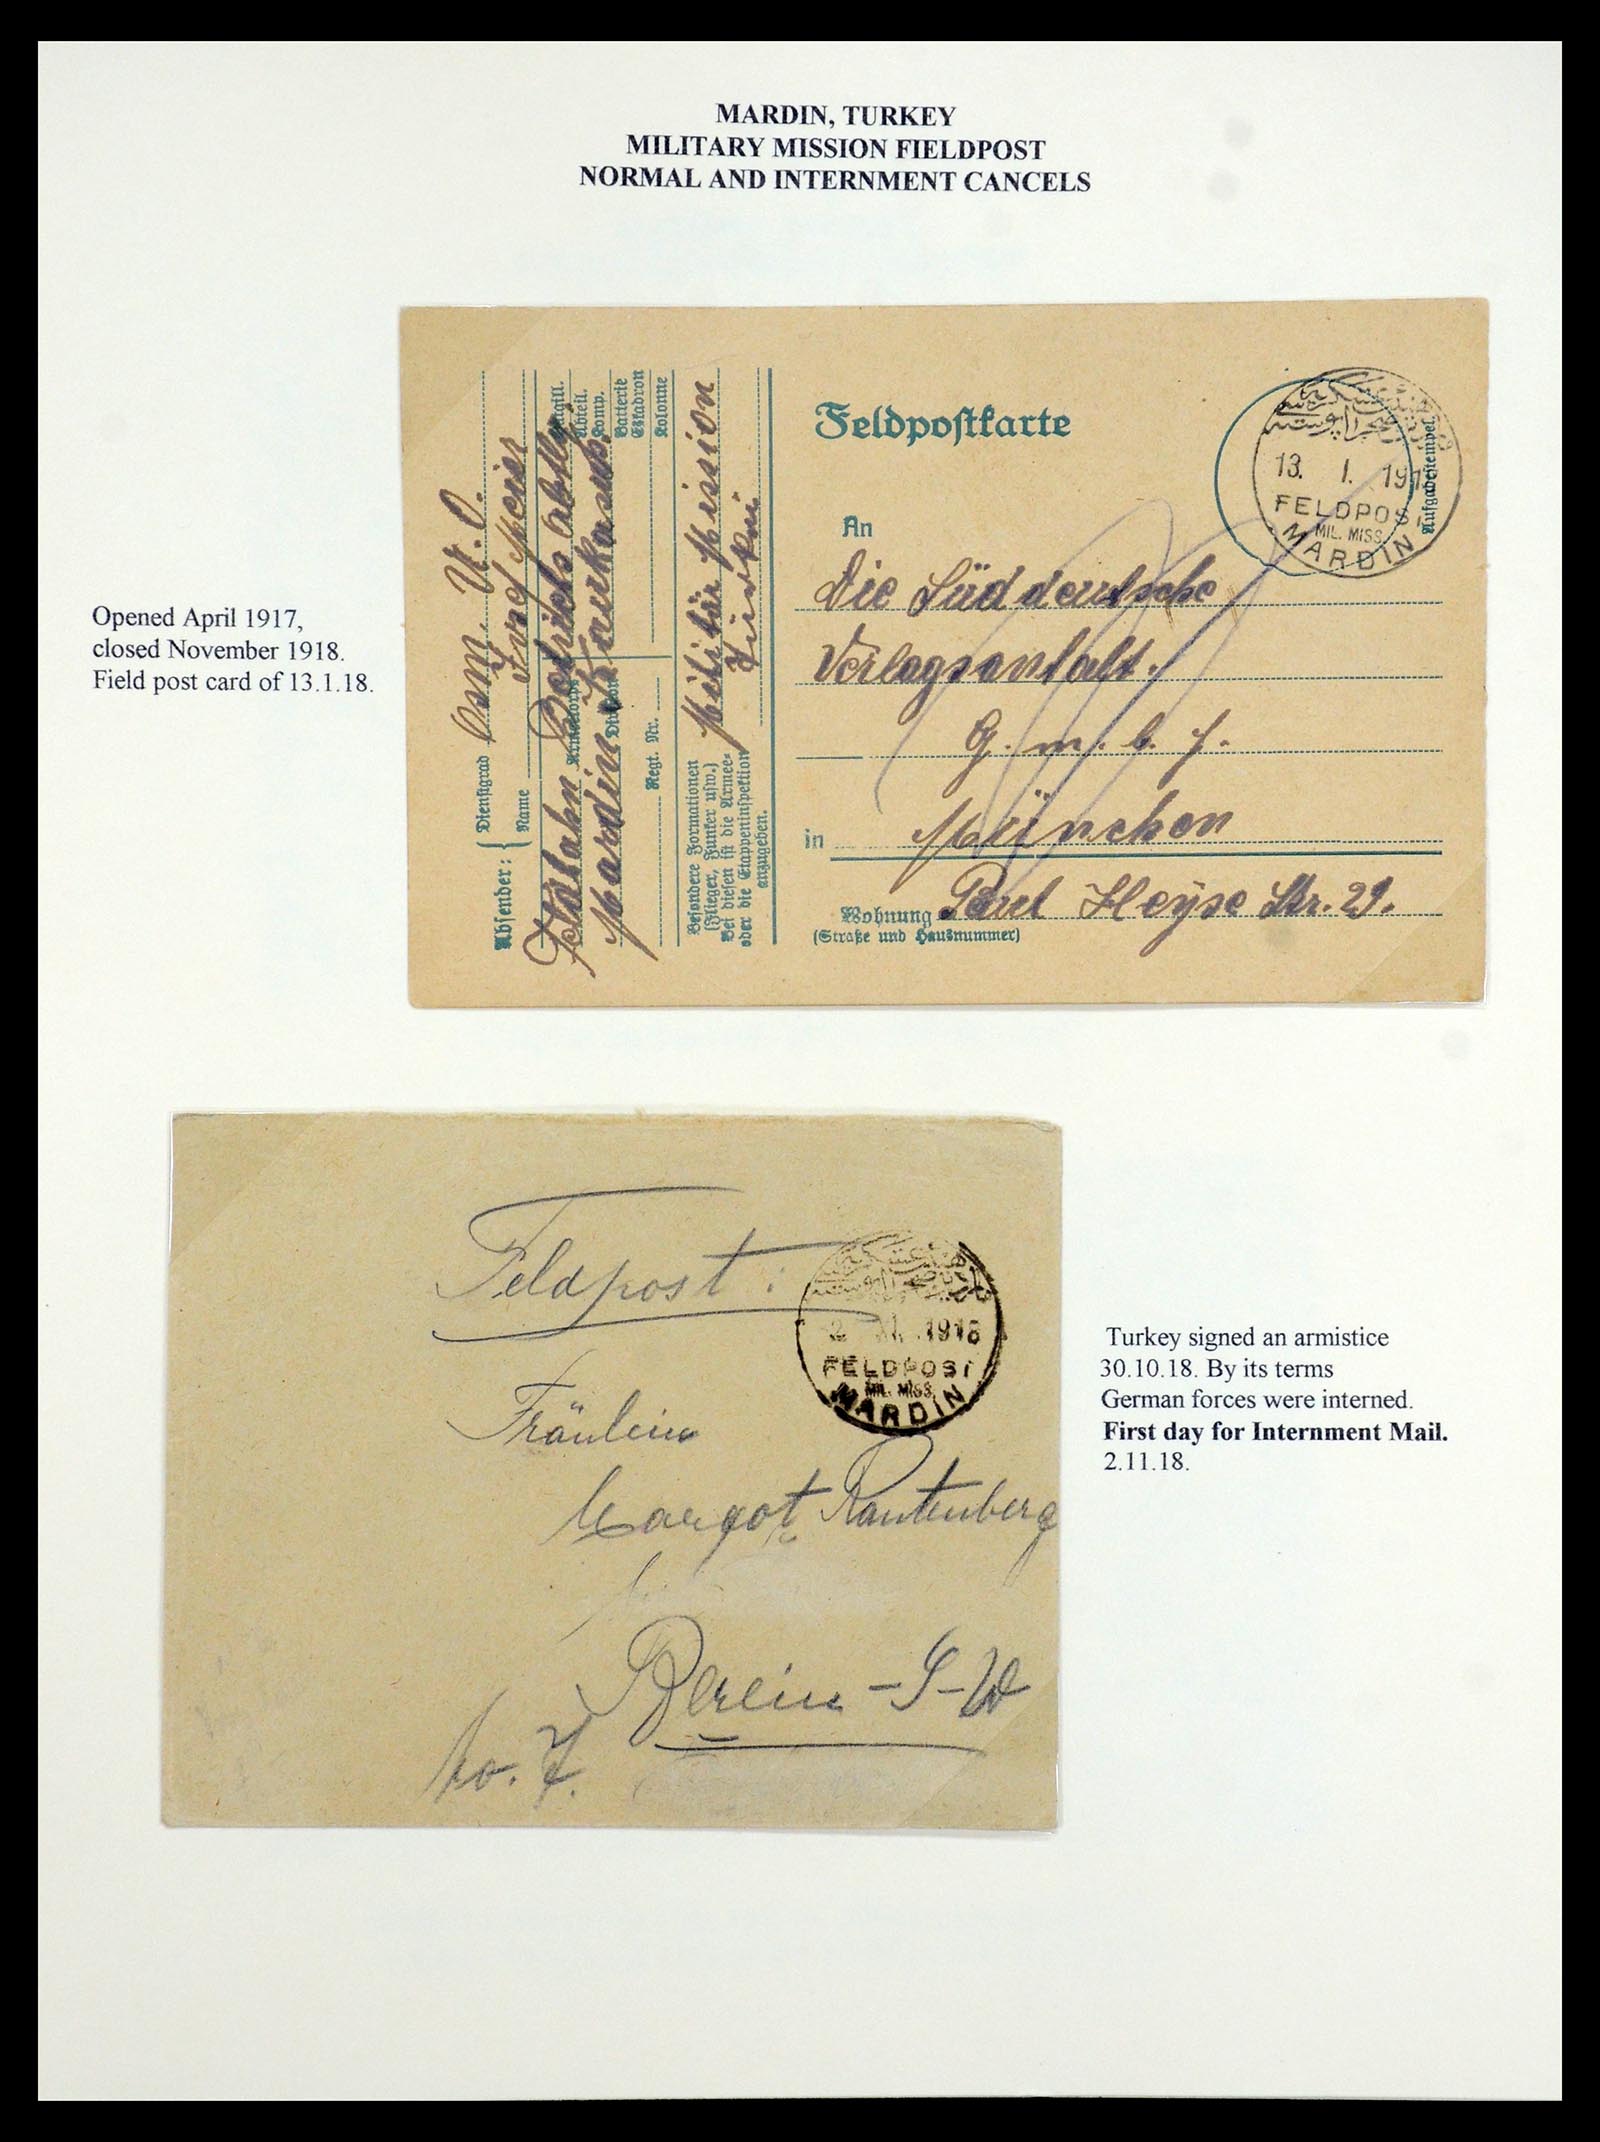 MARDIN, TURKEY
MILITARY MISSION FIELDPOST
NORMAL AND INTERNMENT CANCELS
Opened April 1917,
closed November 1918.
Field post card of 13.1.18.
Absender:
Dienstgrad
Name
Feldbahn Betriebs Abtlg.
Mardin
Armeekorps
Division
Regt. Nr.
Bataill.
Abteil.
Komp.
Batterie
Eskadron
Kolonne
Besondere Formationen
(Flieger, Funker usw.)
Bei diesen ist die Armee-
oder die Etappeninspektion
anzugeben.
Militär Mission
Türkei
Feldpostkarte
Aufgabestempel
13. 1. 191
FELDPOST
MIL. MISS.
MARDIN
An
Die Süddeutsche
Verlagsanstalt.
G. m. b. H.
in München
Wohnung Paul Heyse Str. 29.
(Straße und Hausnummer)
Feldpost:
2 XI. 1918
FELDPOST
MIL. MISS.
MARDIN
Fräulein
Margot Rautenberg
Berlin-S-W
Turkey signed an armistice
30.10.18. By its terms
German forces were interned.
First day for Internment Mail.
2.11.18.